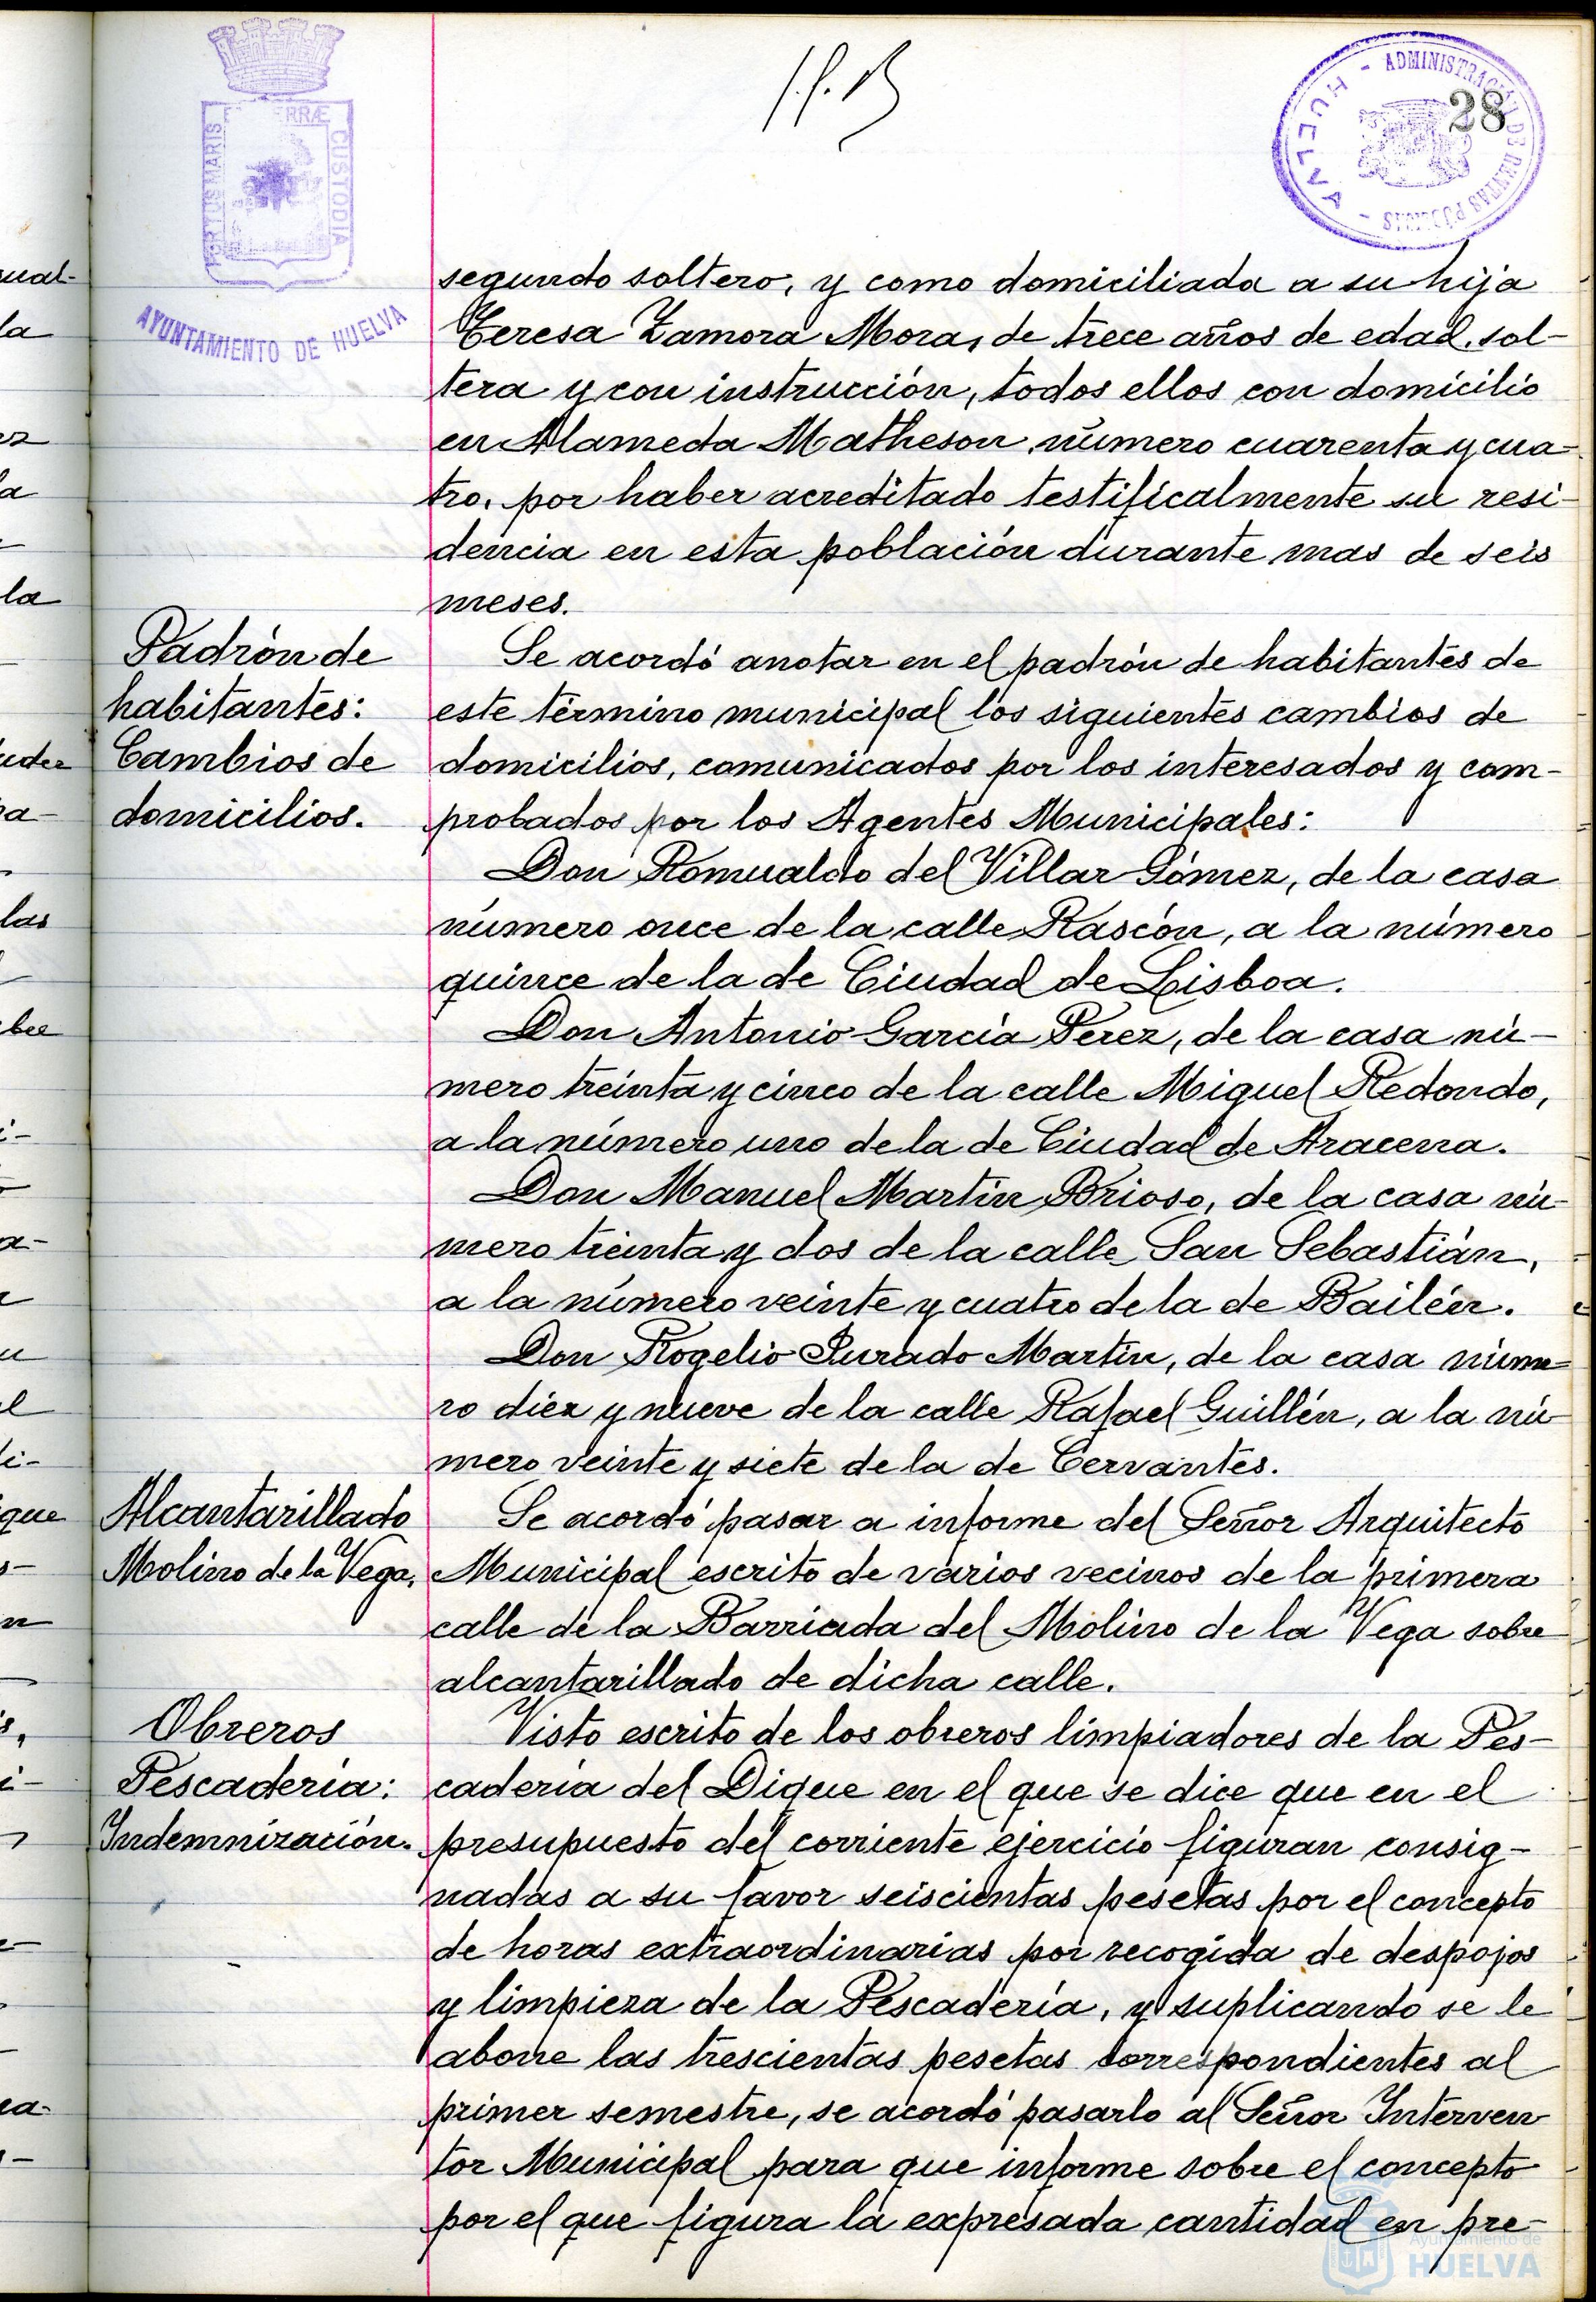 28
ADMINISTRACIÓN DE RENTAS PÚBLICAS - HUELVA -
PORTUS MARIS ET TERRÆ CUSTODIA
AYUNTAMIENTO DE HUELVA
segundo soltero, y como domiciliada a su hija
Teresa Zamora Mora, de trece años de edad, sol-
tera y con instrucción, todos ellos con domicilio
en Alameda Matheson número cuarenta y cua-
tro, por haber acreditado testificalmente su resi-
dencia en esta población durante mas de seis
meses.
Padrón de
habitantes:
Cambios de
domicilios.
Se acordó anotar en el padrón de habitantes de
este término municipal los siguientes cambios de
domicilios, comunicados por los interesados y com-
probados por los Agentes Municipales:
Don Romualdo del Villar Gómez, de la casa
número once de la calle Rascón, a la número
quince de la de Ciudad de Lisboa.
Don Antonio García Pérez, de la casa nú-
mero treinta y cinco de la calle Miguel Redondo,
a la número uno de la de Ciudad de Aracena.
Don Manuel Martín Brioso, de la casa nú-
mero treinta y dos de la calle San Sebastián,
a la número veinte y cuatro de la de Bailén.
Don Rogelio Jurado Martín, de la casa núme-
ro diez y nueve de la calle Rafael Guillén, a la nú-
mero veinte y siete de la de Cervantes.
Alcantarillado
Molino de la Vega.
Se acordó pasar a informe del Señor Arquitecto
Municipal escrito de varios vecinos de la primera
calle de la Barriada del Molino de la Vega sobre
alcantarillado de dicha calle.
Obreros
Pescadería:
Indemnización.
Visto escrito de los obreros limpiadores de la Pes-
cadería del Dique en el que se dice que en el
presupuesto del corriente ejercicio figuran consig-
nadas a su favor seiscientas pesetas por el concepto
de horas extraordinarias por recogida de despojos
y limpieza de la Pescadería, y suplicando se le
abone las trescientas pesetas correspondientes al
primer semestre, se acordó pasarlo al Señor Interven-
tor Municipal para que informe sobre el concepto
por el que figura la expresada cantidad en pre-
Ayuntamiento de
HUELVA